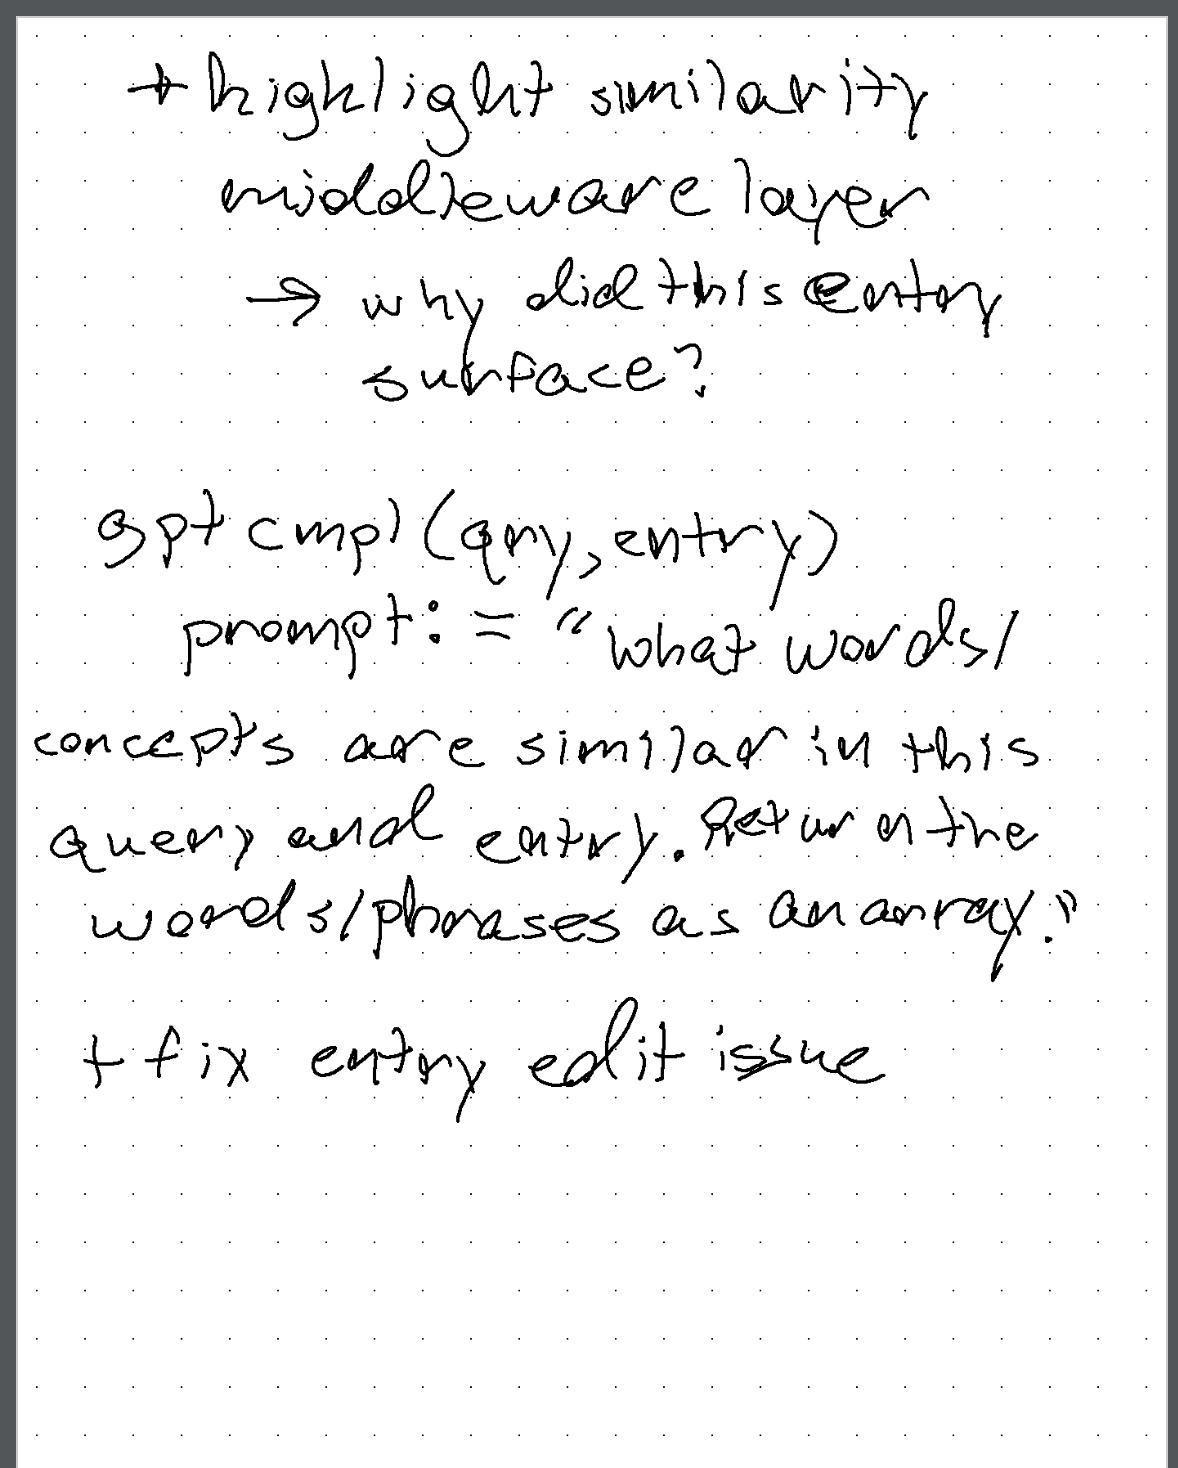 + highlight similarity
middleware layer
→ why did this entry
surface?
gpt cmpl (qry, entry)
prompt: = "what words/
concepts are similar in this
query and entry. Return the
words/phrases as an array."
+ fix entry edit issue